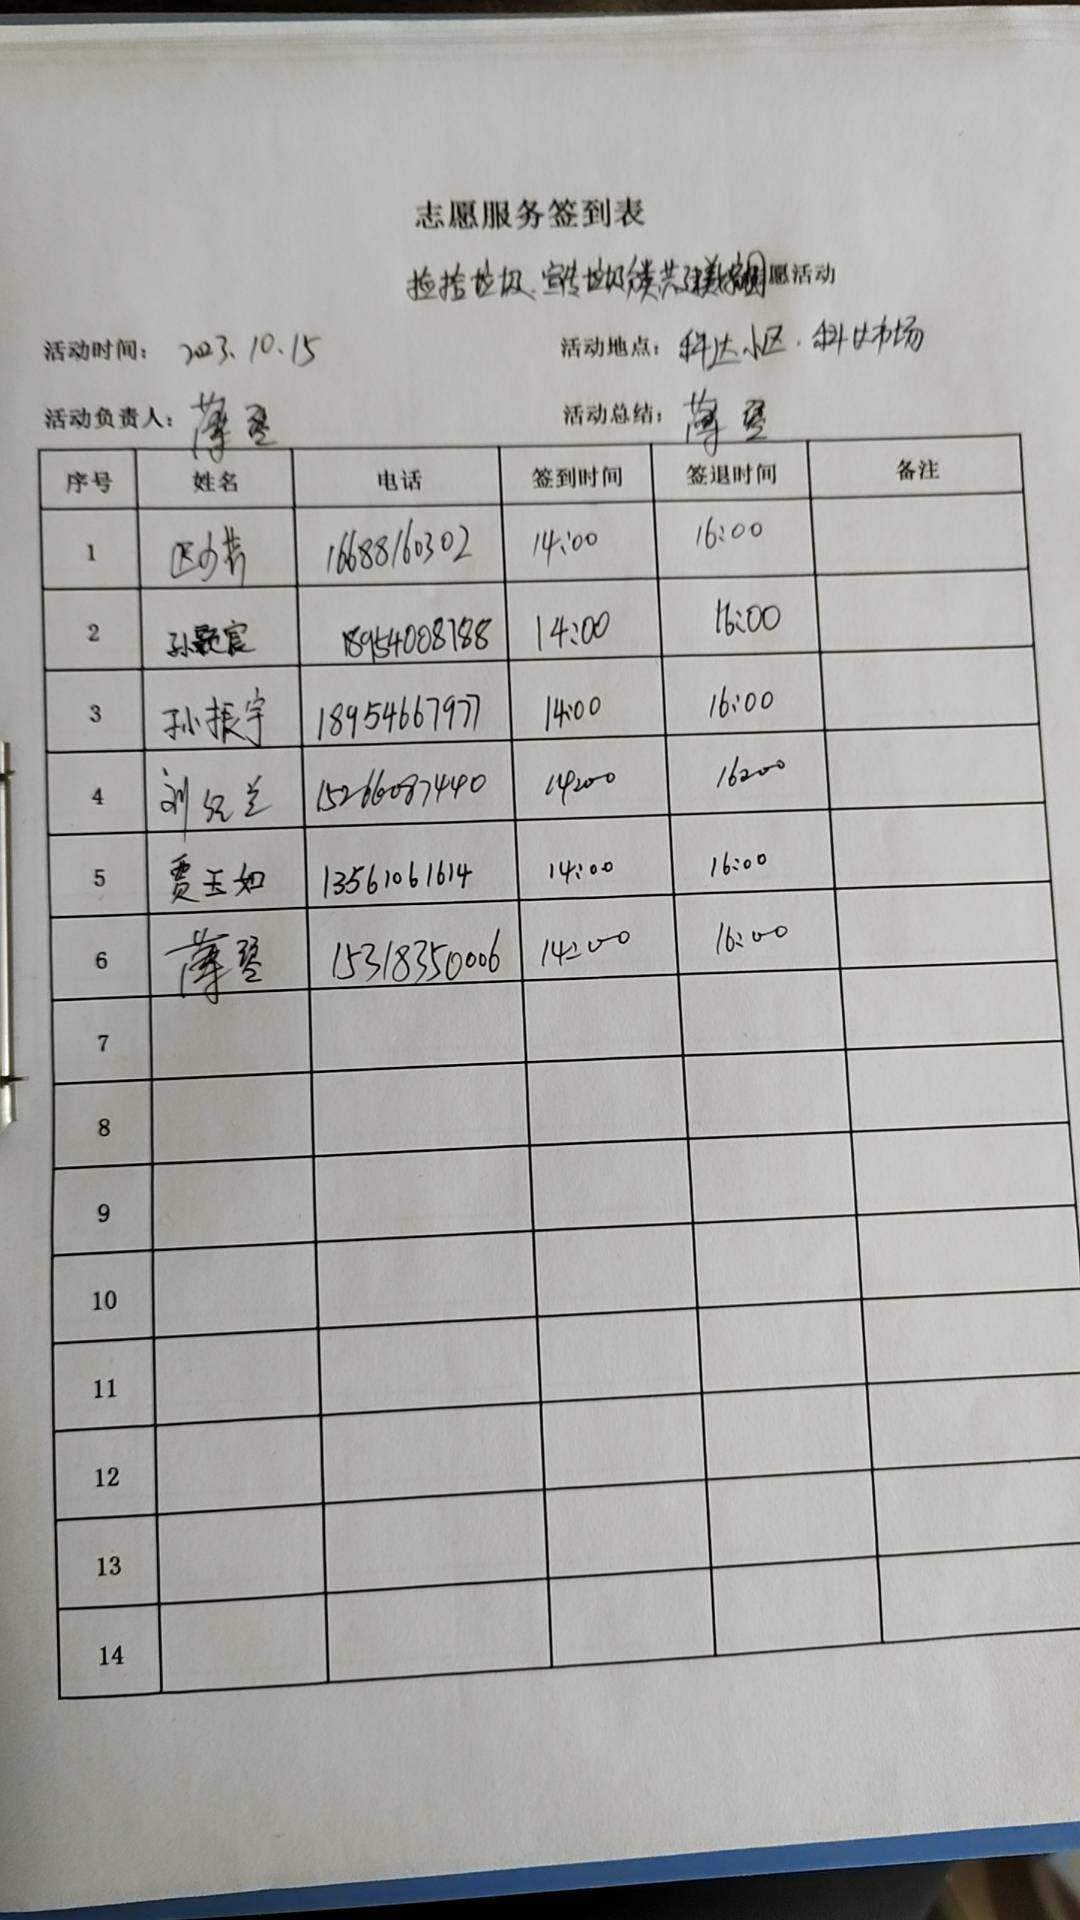 志愿服务签到表
捡拾垃圾、宣传垃圾分类共建美好家园愿活动
活动时间： 2023.10.15 活动地点： 科达小区、科达市场
活动负责人： 薄 活动总结： 薄
序号 姓名 电话 签到时间 签退时间 备注
1 16688160302 14:00 16:00
2 孙 宸 18954008788 14:00 16:00
3 孙振宇 18954667977 14:00 16:00
4 刘红兰 15266087440 14:00 16:00
5 贾玉如 13561061614 14:00 16:00
6 薄 15318350006 14:00 16:00
7
8
9
10
11
12
13
14